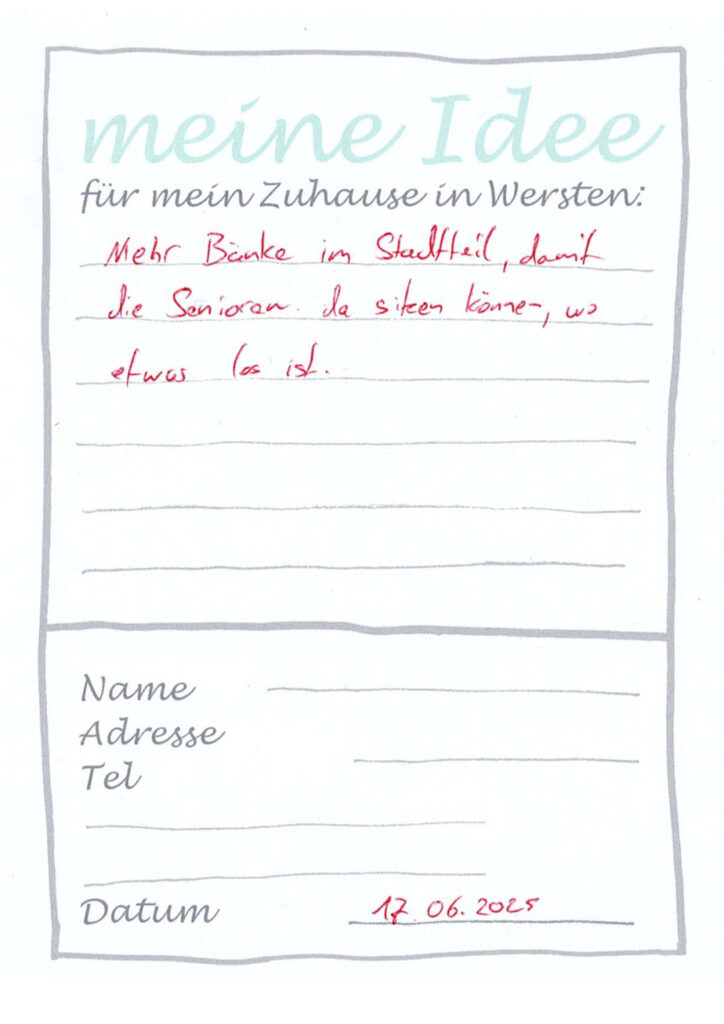 meine Idee
für mein Zuhause in Wersten:
Mehr Bänke im Stadtteil, damit
die Senioren da sitzen können, wo
etwas los ist.
Name
Adresse
Tel
Datum 17.06.2025